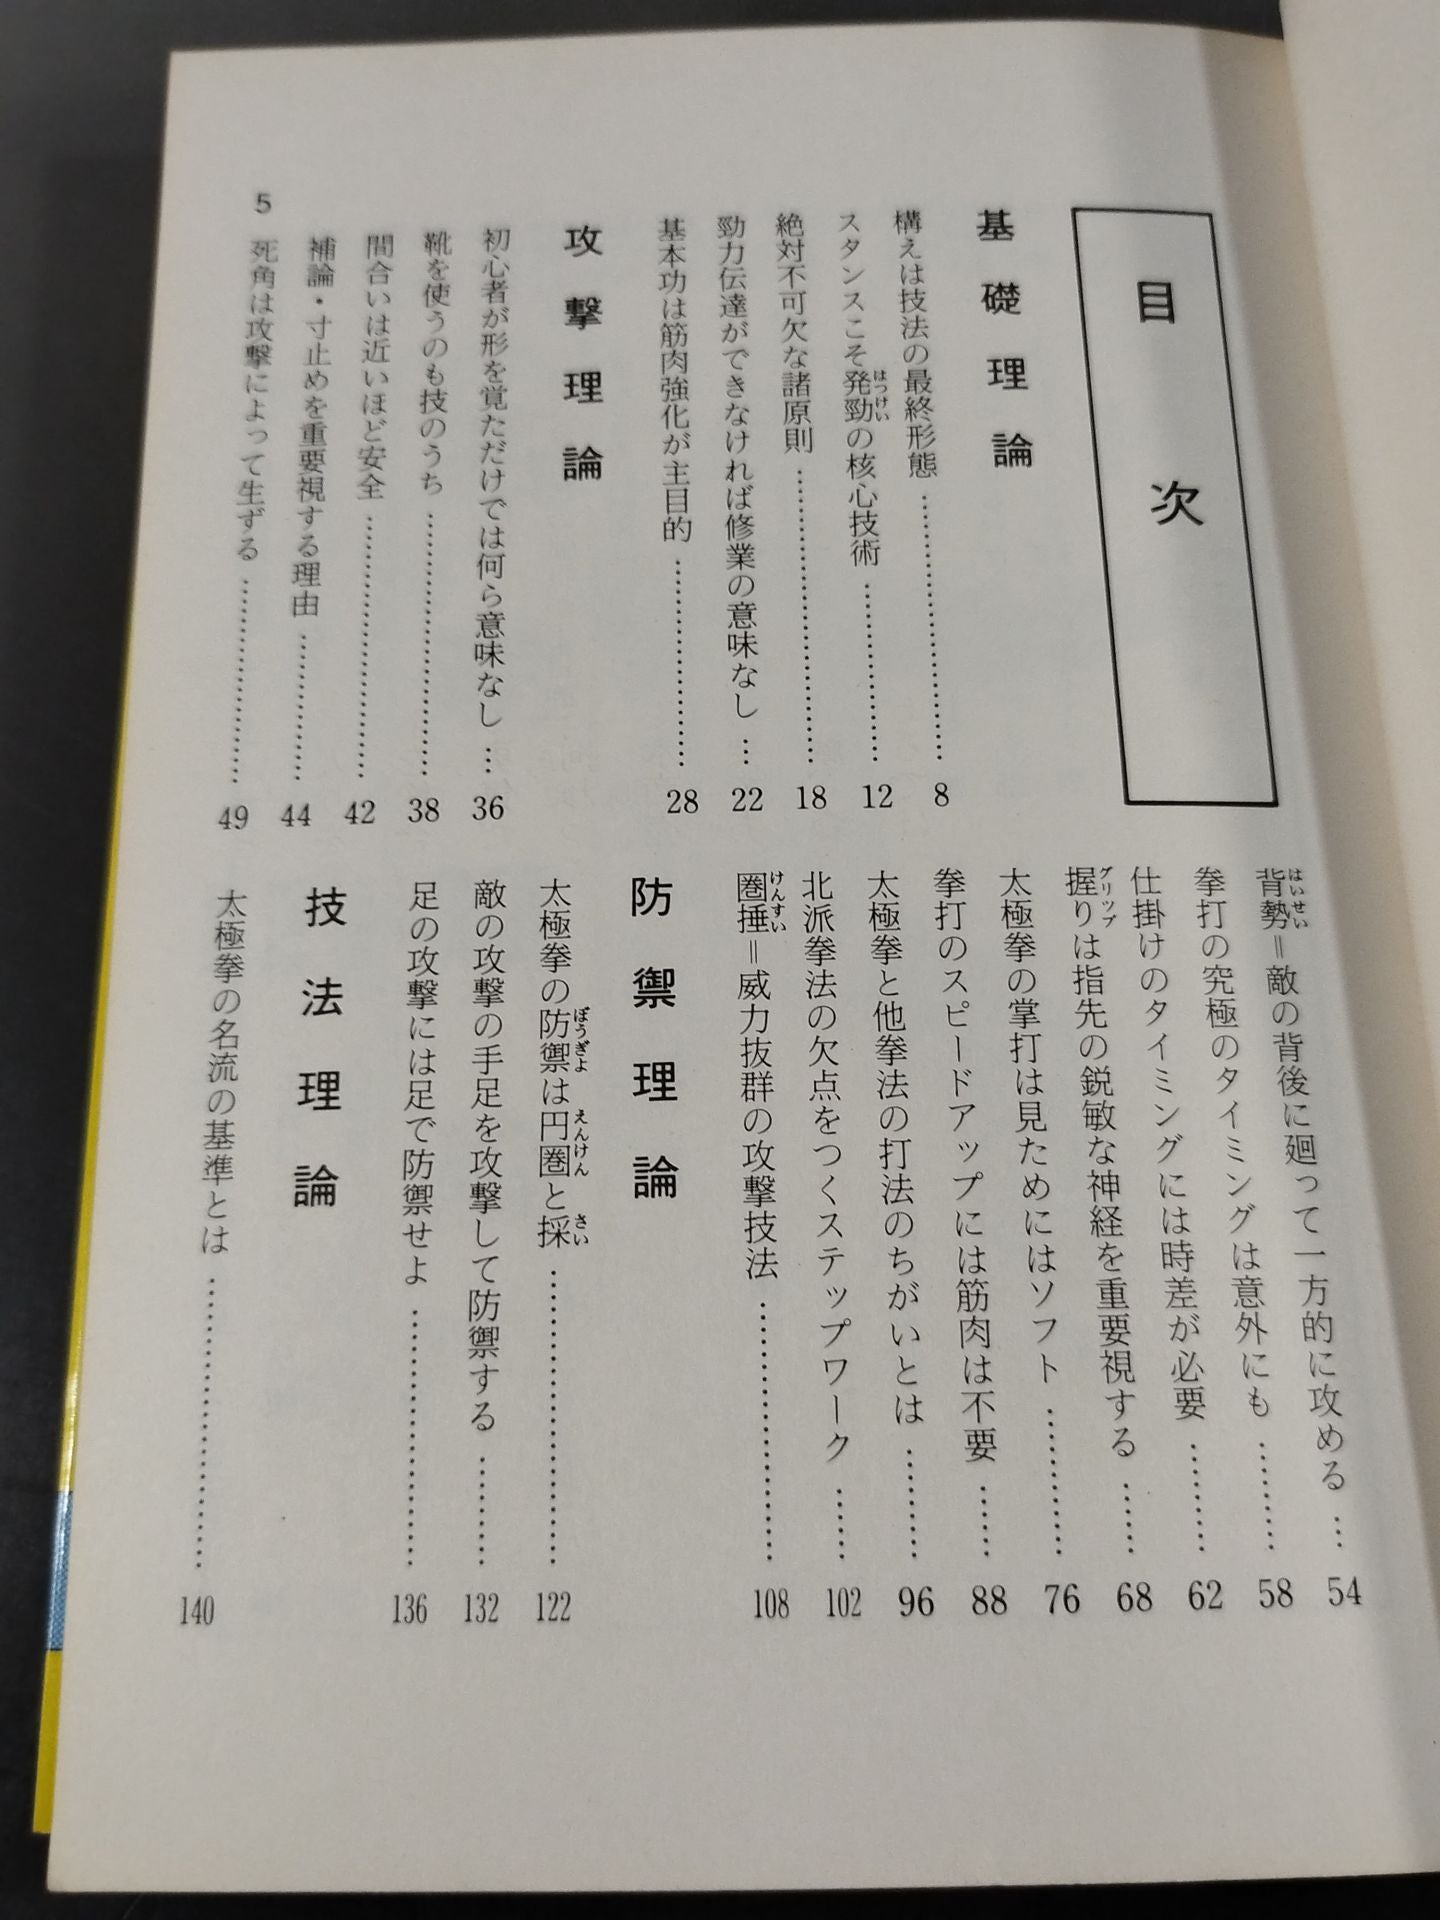 目次
基礎理論
構えは技法の最終形態……………………8
スタンスこそ発勁の核心技術……………12
はっけい
絶対不可欠な諸原則………………………18
勁力伝達ができなければ修業の意味なし…22
基本功は筋肉強化が主目的………………28
攻撃理論
初心者が形を覚ただけでは何ら意味なし…36
靴を使うのも技のうち……………………38
間合いは近いほど安全……………………42
補論・寸止めを重要視する理由…………44
死角は攻撃によって生ずる………………49
5
背勢＝敵の背後に廻って一方的に攻める…54
はいせい
拳打の究極のタイミングは意外にも………58
仕掛けのタイミングには時差が必要………62
握りは指先の鋭敏な神経を重要視する……68
グリップ
太極拳の掌打は見ためにはソフト…………76
拳打のスピードアップには筋肉は不要……88
太極拳と他拳法の打法のちがいとは………96
北派拳法の欠点をつくステップワーク……102
圏捶＝威力抜群の攻撃技法………………108
けんすい
防禦理論
太極拳の防禦は円圏と採…………………122
ぼうぎよ えんけん さい
敵の攻撃の手足を攻撃して防禦する………132
足の攻撃には足で防禦せよ………………136
技法理論
太極拳の名流の基準とは…………………140